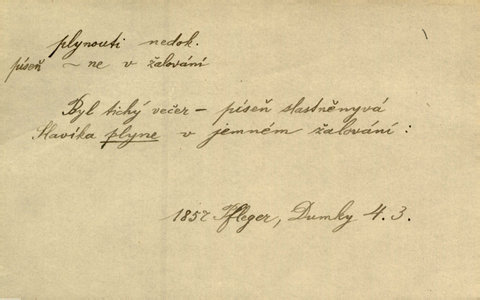 plynouti nedok.
píseň ~ ne v žalování
Byl tichý večer – píseň slastněnyvá
Slavíka plyne v jemném žalování :
1857 Pfleger, Dumky 4. 3.